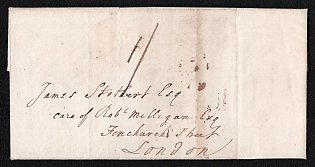 1/
James Stothert Esq
care of Robt. Milligan Esq
Fenchurch Street
London